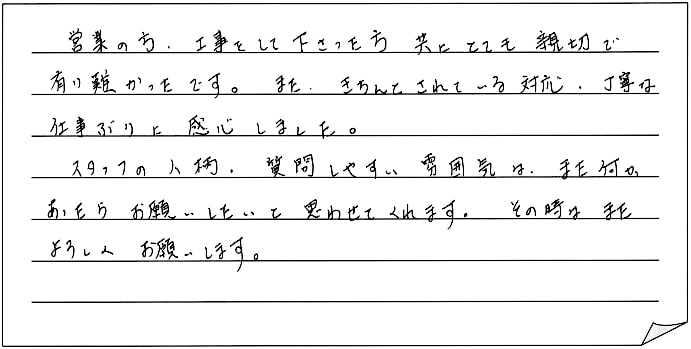 営業の方、工事をして下さった方 共に とても 親切で
有り難かったです。また、きちんとされている対応、丁寧な
仕事ぶりに 感心しました。
スタッフの人柄、質問しやすい雰囲気は、また何か
あったら お願いしたいと 思わせてくれます。 その時は また
よろしく お願いします。